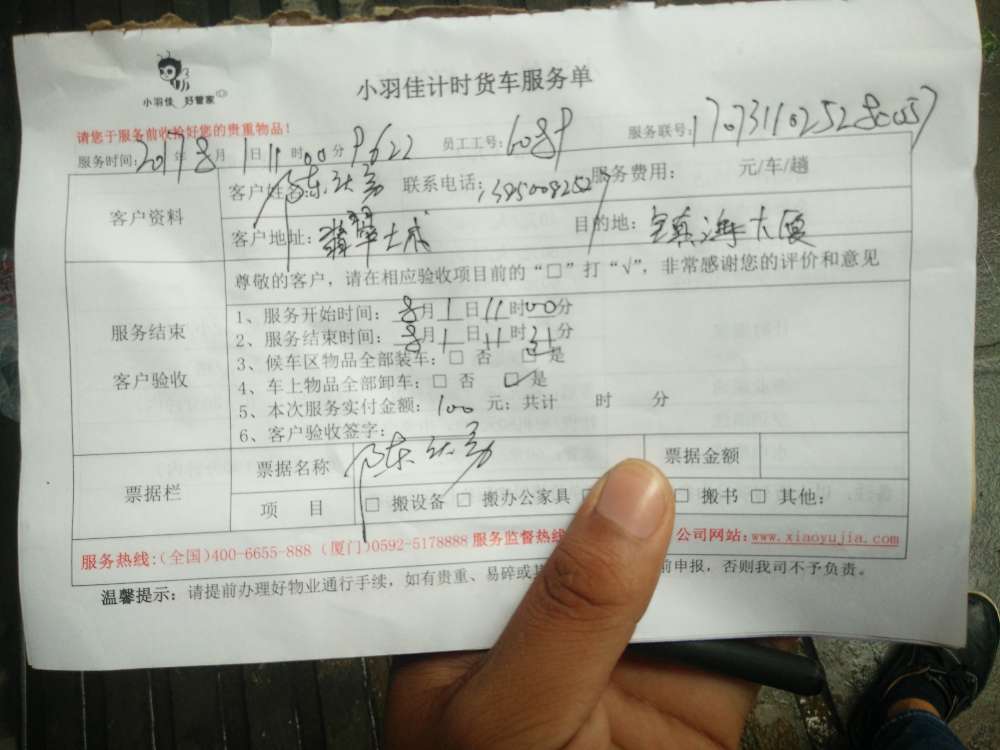 小羽佳 好管家
小羽佳计时货车服务单
请您于服务前收捡好您的贵重物品!
服务时间: 2017年8月1日11时00分 9622 员工工号: 6089 服务联号:
客户资料
客户姓名: 陈 联系电话: 服务费用: 元/车/趟
客户地址: 翡翠城 目的地: 镇海大厦
服务结束
客户验收
尊敬的客户,请在相应验收项目前的“□”打“√”,非常感谢您的评价和意见
1、服务开始时间: 8月1日11时00分
2、服务结束时间: 8月1日11时31分
3、候车区物品全部装车: □ 否 □ 是
4、车上物品全部卸车: □ 否 □ 是
5、本次服务实付金额: 100元; 共计 时 分
6、客户验收签字: 陈
票据栏
票据名称 票据金额
项 目 □ 搬设备 □ 搬办公家具 □ 搬书 □ 其他:
服务热线:(全国)400-6655-888 (厦门)0592-5178888 服务监督热线 公司网站:www.xiaoyujia.com
温馨提示: 请提前办理好物业通行手续,如有贵重、易碎或 前申报,否则我司不予负责。